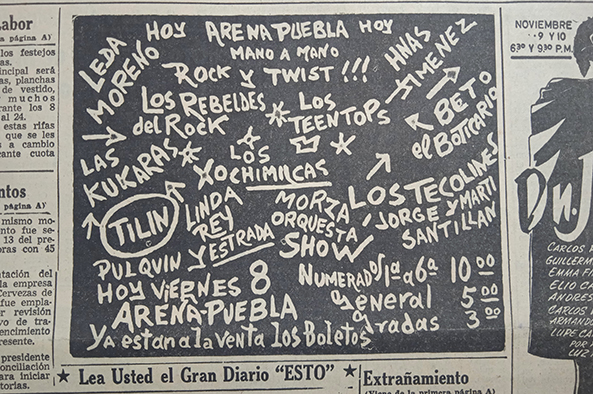 Labor
página A)
los festejos
as.
ncipal será
as, planchas
de vestido,
y muchos
rante los 8
al 24.
estas rifas
que se les
s a cambio
cante cuota
ntos
página A)
mismo mo-
nto fue se-
13 del pre-
oras con 45
ntación del
la empresa
Cervezas de
fue empla-
r revisión
vo de tra-
encimiento
resente.
presidente
onciliación
ara iniciar
torias.
HOY ARENA PUEBLA HOY
MANO A MANO
ROCK Y TWIST !!!
LEDA
MORENO
HNAS
JIMENEZ
LOS REBELDES
del ROCK
LOS
TEENTOPS
BETO
el BOTICARIO
LAS
KUKARAS
LOS
XOCHIMILCAS
TILIN
LINDA
REY
Y ESTRADA
MORZA
ORQUESTA
SHOW
LOS TECOLINES
JORGE Y MARTI
SANTILLAN
PULQUIN
HOY VIERNES 8
ARENA-PUEBLA
NUMERADOS 1ª a 6ª 10 00
general 5 00
gradas 3 00
Ya estan a la venta los Boletos
★ Lea Usted el Gran Diario "ESTO" ★
Extrañamiento
(Viene de la primera página A)
NOVIEMBRE
9 Y 10
6:30 Y 9:30 P.M.
Dn. J
CARLOS
GUILLERM
EMMA FI
ELIO CA
ANDRES
CARLOS
ARMAND
LUPE CA
POR
LUZ